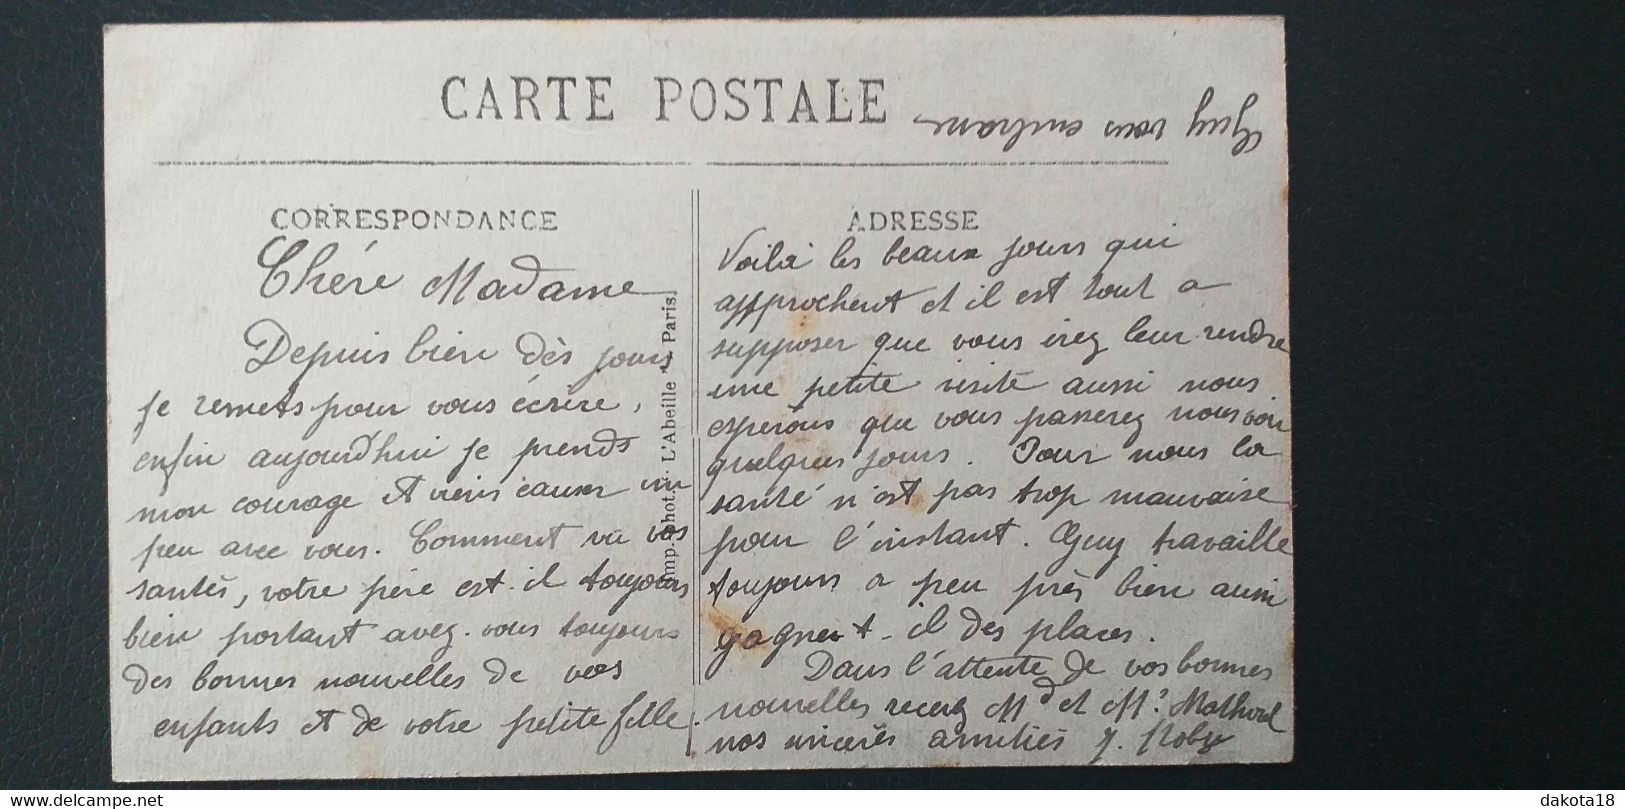 CARTE POSTALE
Guy vous embrasse
CORRESPONDANCE
Chére Madame
Depuis bien dès jours
je remets pour vous écrire,
enfin aujourd'hui je prends
mon courage et viens causer un
peu avec vous. Comment va vos
santés, votre père est-il toujours
bien portant avez-vous toujours
des bonnes nouvelles de vos
enfants et de votre petite fille.
Imp. Phot. L'Abeille - Paris.
ADRESSE
Voilà les beaux jours qui
approchent et il est tout a
supposer que vous irez leur rendre
une petite visite aussi nous
esperons que vous passerez nous voir
quelques jours. Pour nous la
santé n'est pas trop mauvaise
pour l'instant. Guy travaille
toujours a peu près bien aussi
gagne-t-il des places.
Dans l'attente de vos bonnes
nouvelles recevez Md et Mr
nos sincerès amitiés
dakota18